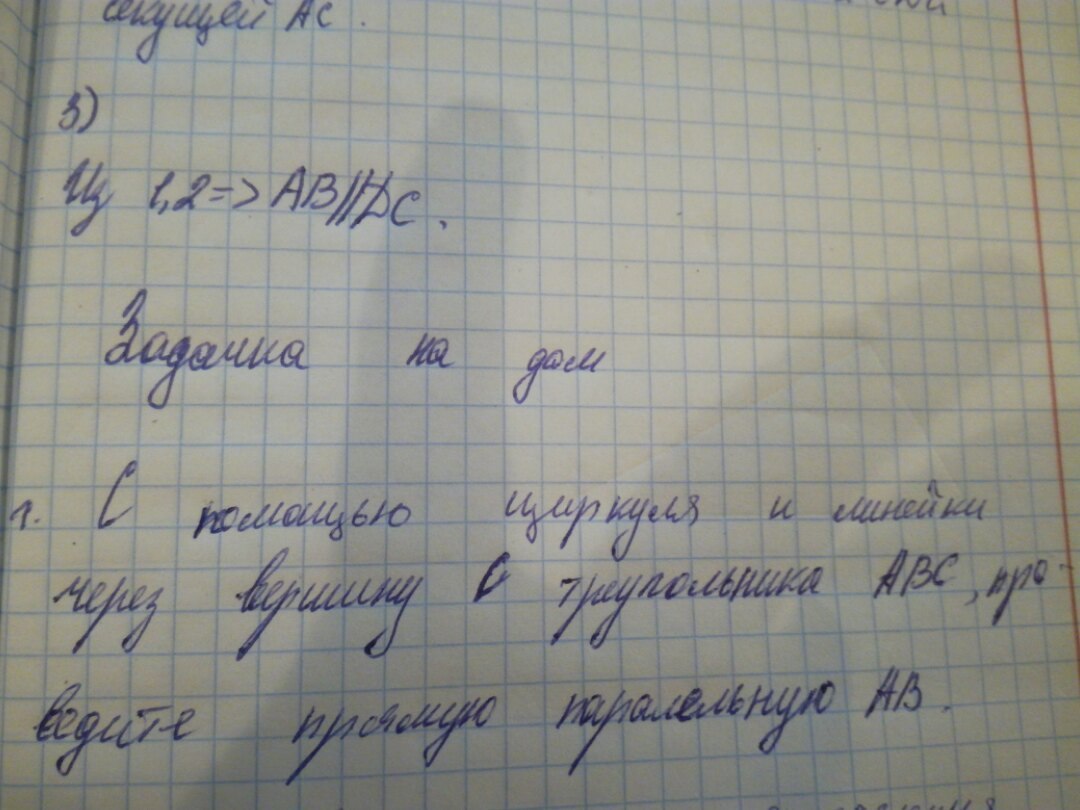 секущей АС.
3)
Из 1,2 => AB||DC.
Задачка на дом
1. С помощью циркуля и линейки
через вершину С треугольника ABC, про-
ведите прямую паралельную AB.